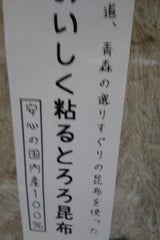 道、青森の選りすぐりの昆布を使った
おいしく粘るとろろ昆布
安心の国内産100%